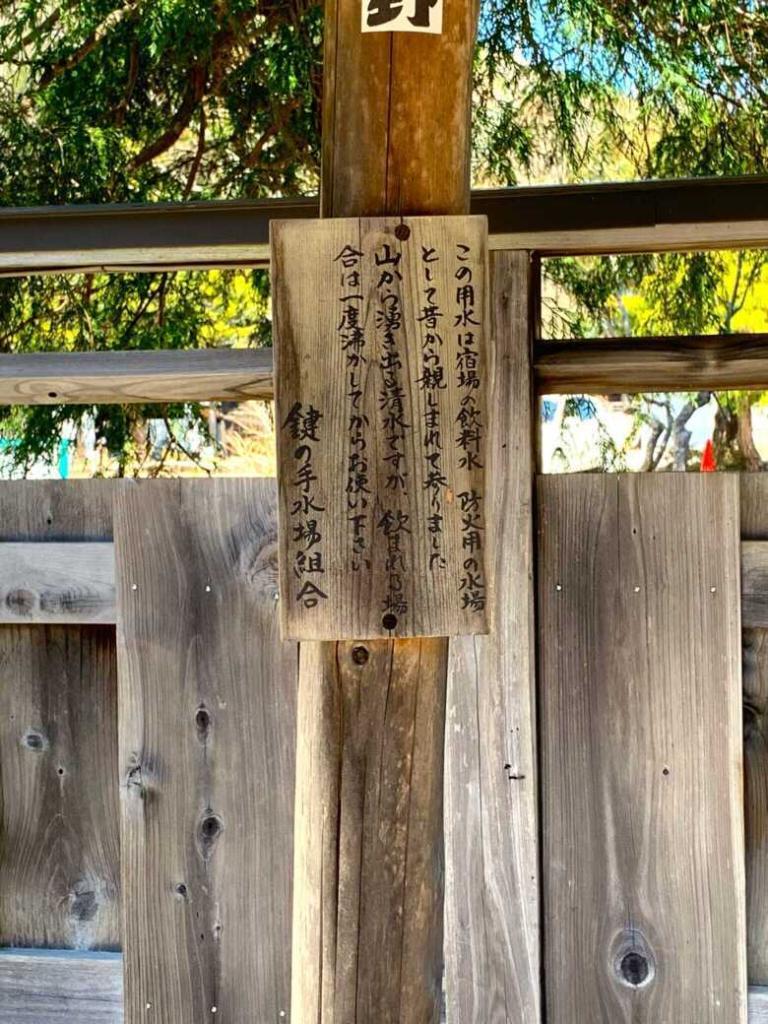 野
この用水は宿場の飲料水 防火用の水場
として昔から親しまれて参りました
山から湧き出る清水ですが、飲まれる場
合は一度沸かしてからお使い下さい
鍵の手水場組合